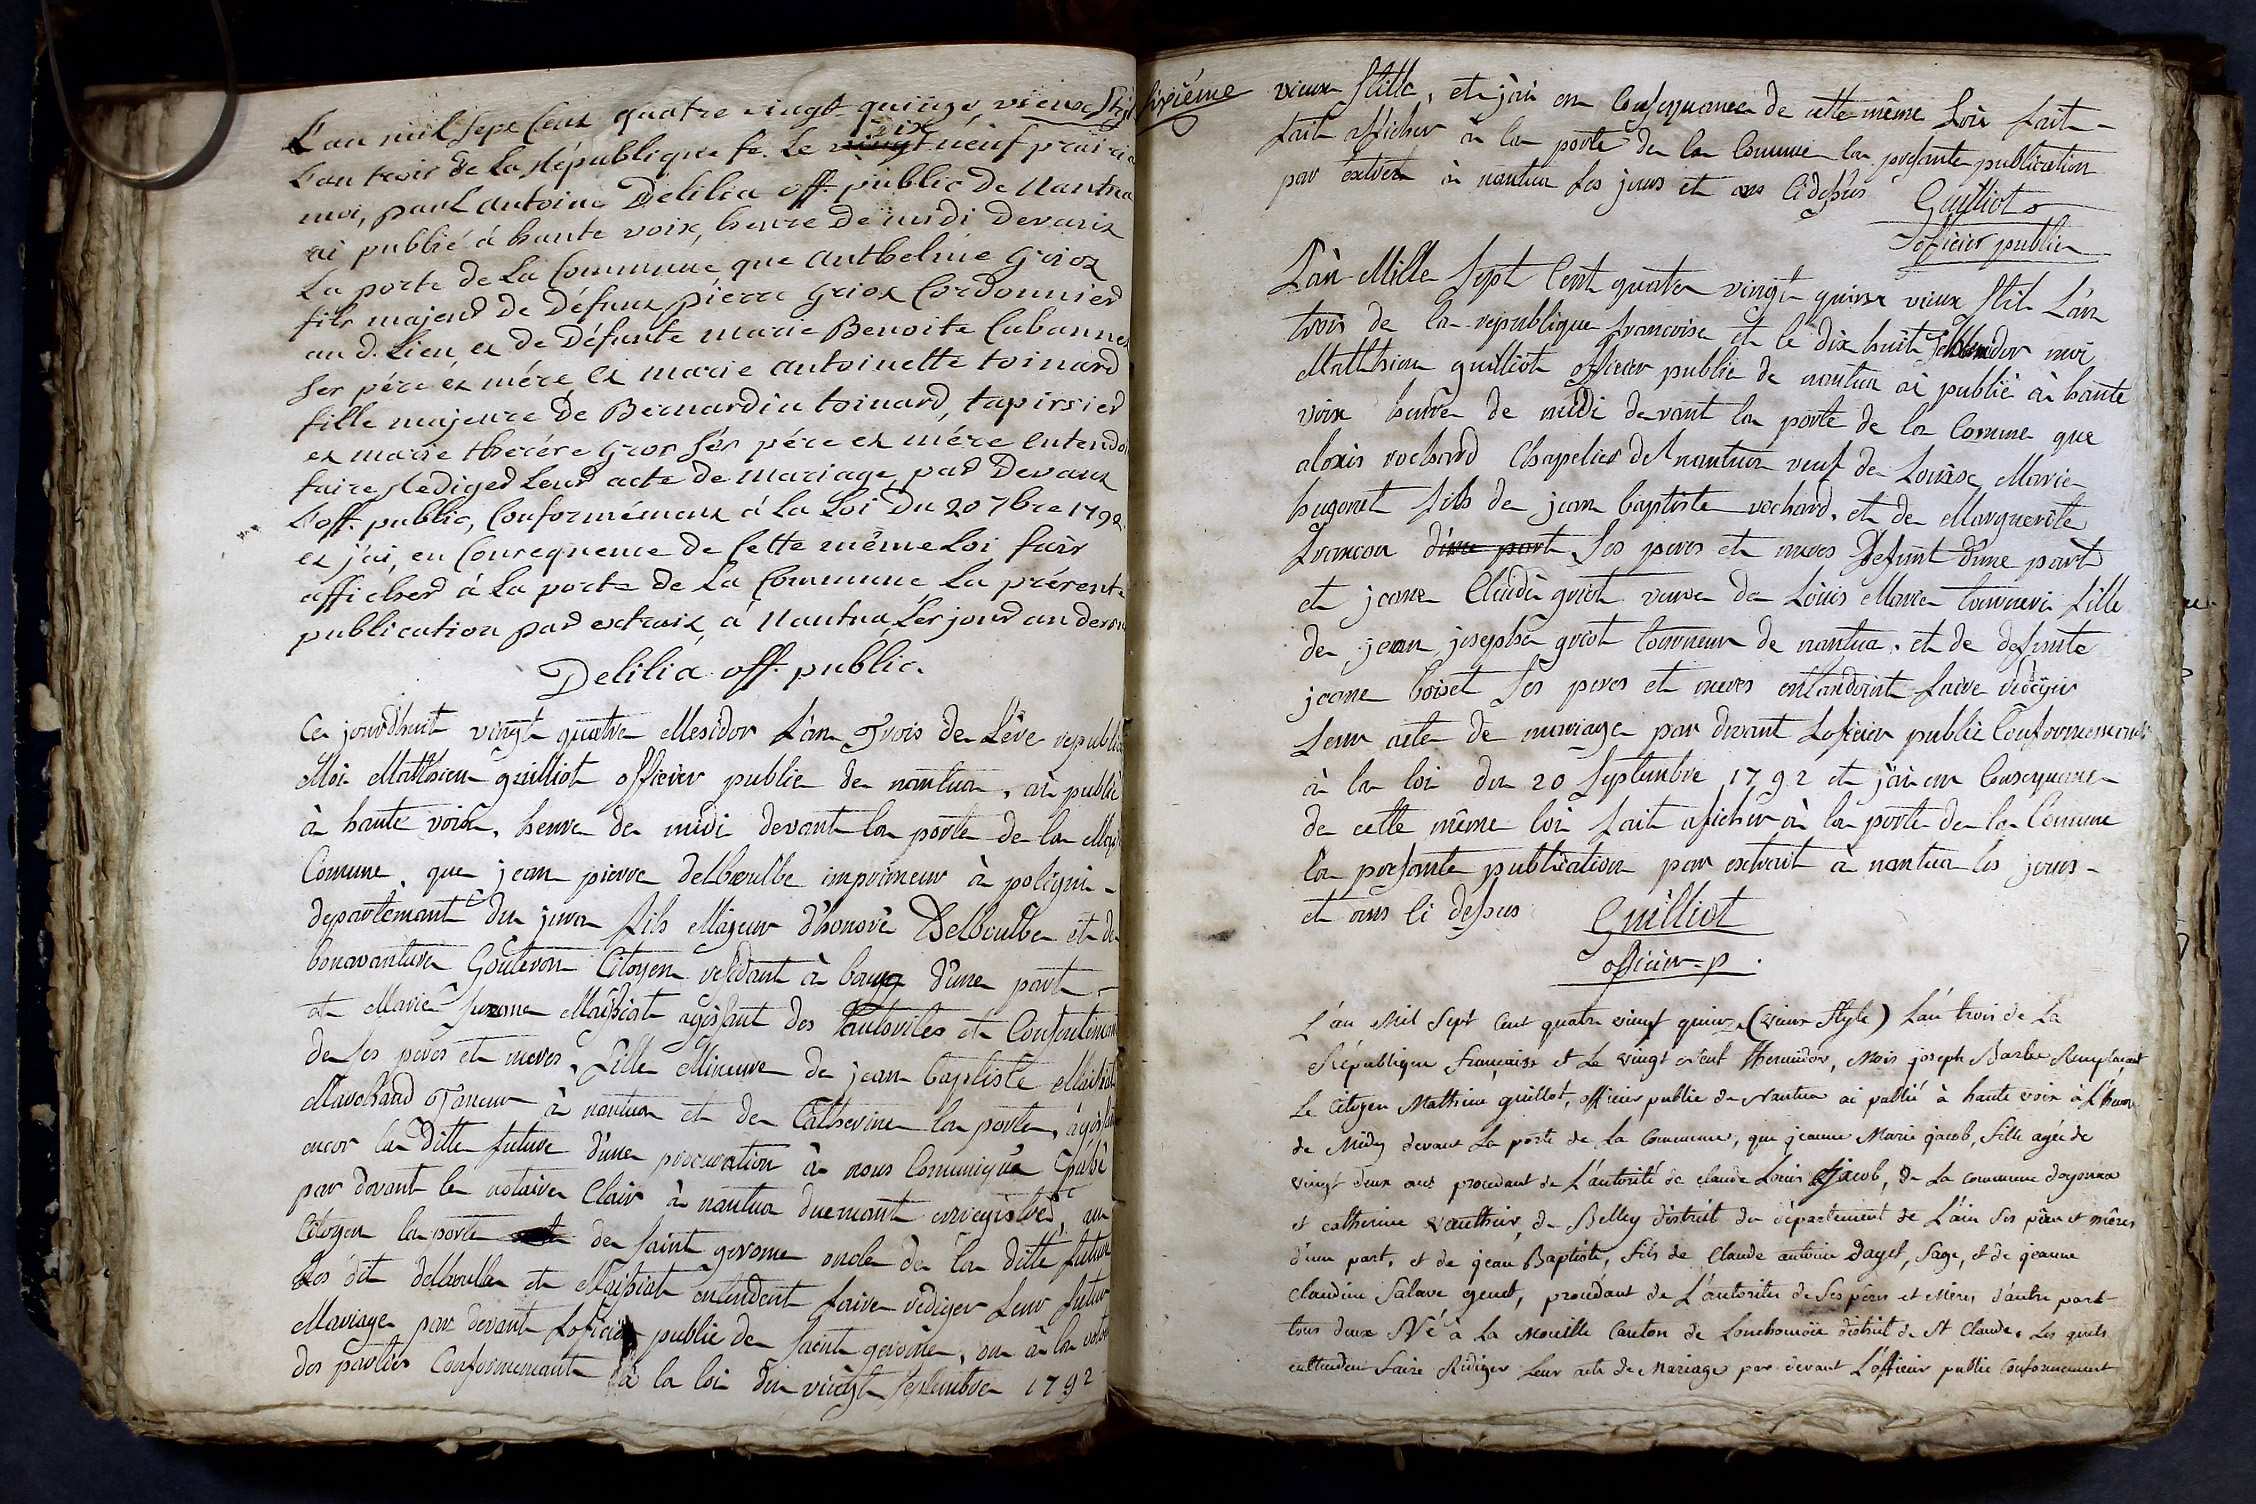 L'an mil sept Cent quatre vingt quinze vieux Stil
L'an trois de La République fe. Le dix neuf prairia
moi, paul antoine Delilia off. public de Nantua
ai publié á haute voix, heure De midi Devanx
La porte de La Commune que anthelme Griox
fils majeur de Défunx pierre Griox Cordonnier
au d. Lieu, ex de Défunte marie Benoite Cabannes
ses pére ex mére, ex marie antoinette toinard
fille majeure de Bernardin toinard, tapissier
ex marie therére Gros sés pére ex mére entendo
faire Rédiger Leur acte de mariage, par Devanx
L'off. public, Conformémenx á La Loi Du 20 7bre 1792
ex j'ai, en Conséquence de Cette même Loi fair
afficher á La porte de La Commune La présente
publication par extraix, á Nantua, Les jour an dessu
Delilia off. public.
Ce jourd'huit vingt quatre Mesidor L'àn Trois de L'ére republi
Moi Matthieu guilliot officier public de nantua, ai publié
à haute voix, heure de midi devant la porte de la
Comune que jean pierre delboulbe imprimeur à poligni
departement du jura fils Majeur d'honoré Delboulbe et de
bonavanture Gouleron Citoyen residant à bourg d'une part
et Marie Suzane Maissiat agissant des autorites et Consentiment
de ses peres et meres, Fille Mineure de jean baptiste Maissiat
Marchand Taneur à nantua et de Catherine la porte, agissant
encor la ditte future d'une procuration à nous Comuniquée passé
par devant le notaire Clair à nantua duemant enregistré, au
Citoyen la porte de saint gerome oncle de la ditte future
Les dit delboulbe et Maissiat entendent faire rediger leur futur
Mariage par devant Lofficier public de saint gerome, ou à la volon
des parties Conformemant à la loi du vingt septembre 1792
sixiéme vieux stille, et j'ài en Consequance de cette même Loi fait
fait afficher à la porte de la Commune la presante publication
par extrait à nantua les jours et ans ci dessus Guilliot
officier public
L'àn Mille Sept Cent quatre vingt quinse vieux stil L'an
trois de la republique francoise et le dix huit Thermidor moi
Matthieu guilliot officier public de nantua ai publié à haute
voix heure de midi devant la porte de la Comune que
alexis rochard Chapelier de nantua veuf de Louise Marie
hugonet fils de jean baptiste rochard, et de Marguerite
francou d'une part ses peres et meres Defunt d'une part
et jeane Claudà griot veuve de Louis Marie tourneri fille
de jean joseph griot tourneur de nantua, et de defunte
jeane boiset ses peres et meres entandoint faire rediger
Leur acte de mariage par devant Loficier public Conformemant
à la loi du 20 septembre 1792 et j'ai en Consequance
de cette même loi fait aficher à la porte de la Comune
la presante publication par extrait à nantua les jours
et ans ci dessus Guilliot
officier p.
L'àn Mil Sept Cent quatre vingt quinze (vieux Style) L'an trois de La
République française et Le vingt neuf thermidor, Mois joseph Barbe Remplaçant
Le Citoyen Mathieu guillot, officier public de Nantua ai publié à haute voix à L'heure
de Midy devant La porte de La Commune, que jeanne Marie jacob, fille agée de
vingt deux ans procedant de L'autorité de claude Louis jacob, de La commune doyonna
et catherine vauthier, de Belley district du département de L'ain ses pères et mères
d'une part, et de jean Baptiste, fils de claude antoine Dayet, sage, et de jeanne
claudine Salave genet, procédant de L'autorités de Ses pères et Mères d'autre part
tous deux Né à La Mouille Canton de Lonchomoïs district de St Claude, Les quels
entendent faire Rédiger Leur acte de Mariage par devant L'officier public Conformement